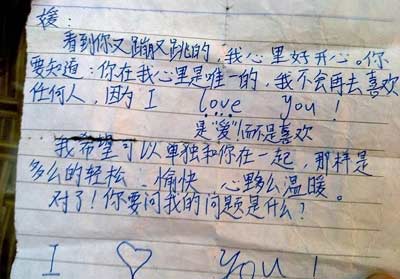 媛：
看到你又蹦又跳的，我心里好开心。你
要知道：你在我心里是唯一的，我不会再去喜欢
任何人，因为 I love you！
是“爱”而不是喜欢
我希望可以单独和你在一起，那样是
多么的轻松、愉快、心里多么温暖。
对了！你要问我的问题是什么？
I ♡ you！